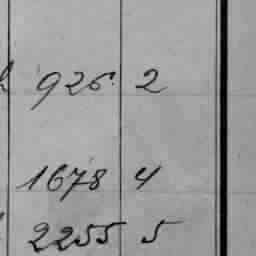 926. 2
1678 4
2255 5